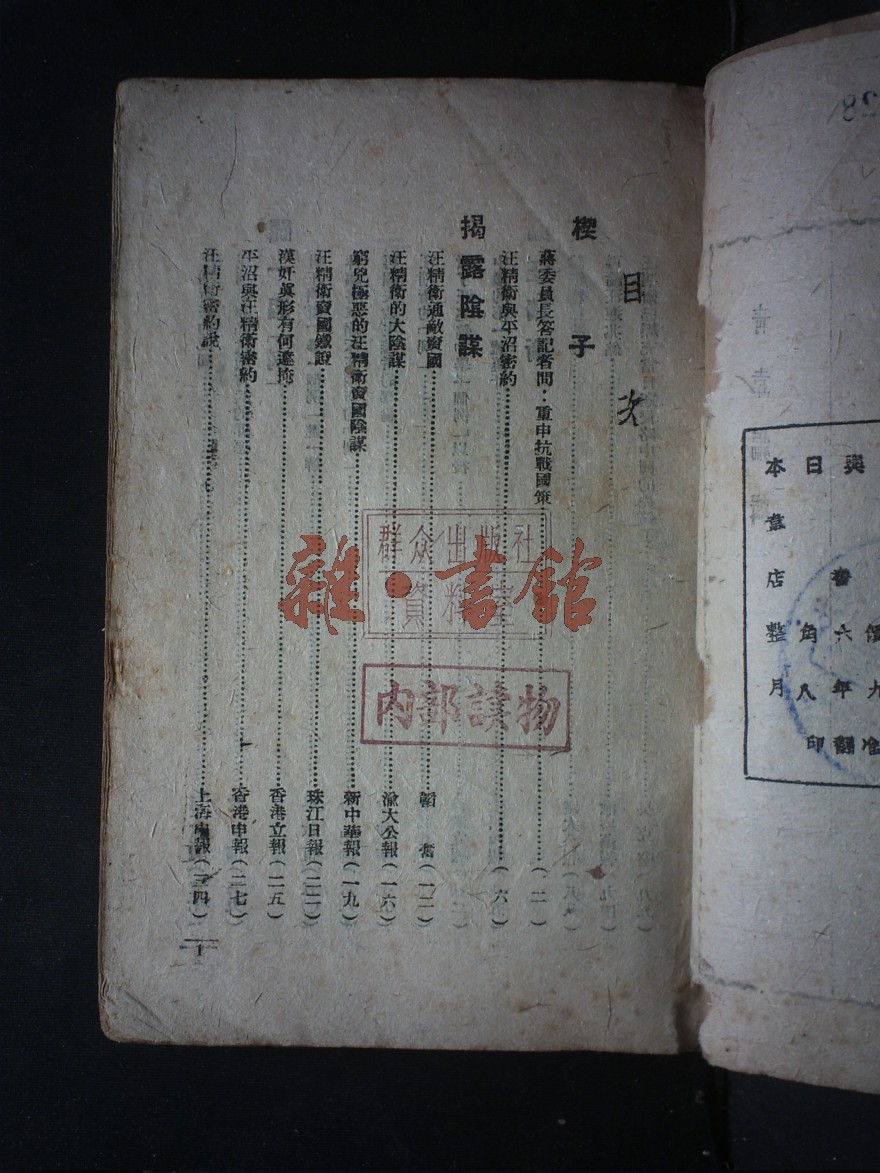 目次
楔子
蔣委員長答記者問·重申抗戰國策……（二）
汪精衛與平沼密約……（六）
揭露陰謀
汪精衛通敵賣國……韜奮（一二）
汪精衛的大陰謀……渝大公報（一六）
窮兇極惡的汪精衛賣國陰謀……新中華報（一九）
汪精衛賣國鐵證……珠江日報（二二）
漢奸真形有何遮掩……香港立報（二五）
平沼與汪精衛密約……香港申報（二七）
汪精衛密約說……上海申報（三四）
1
群众出版社
資料室
内部讀物
雜·書館
28